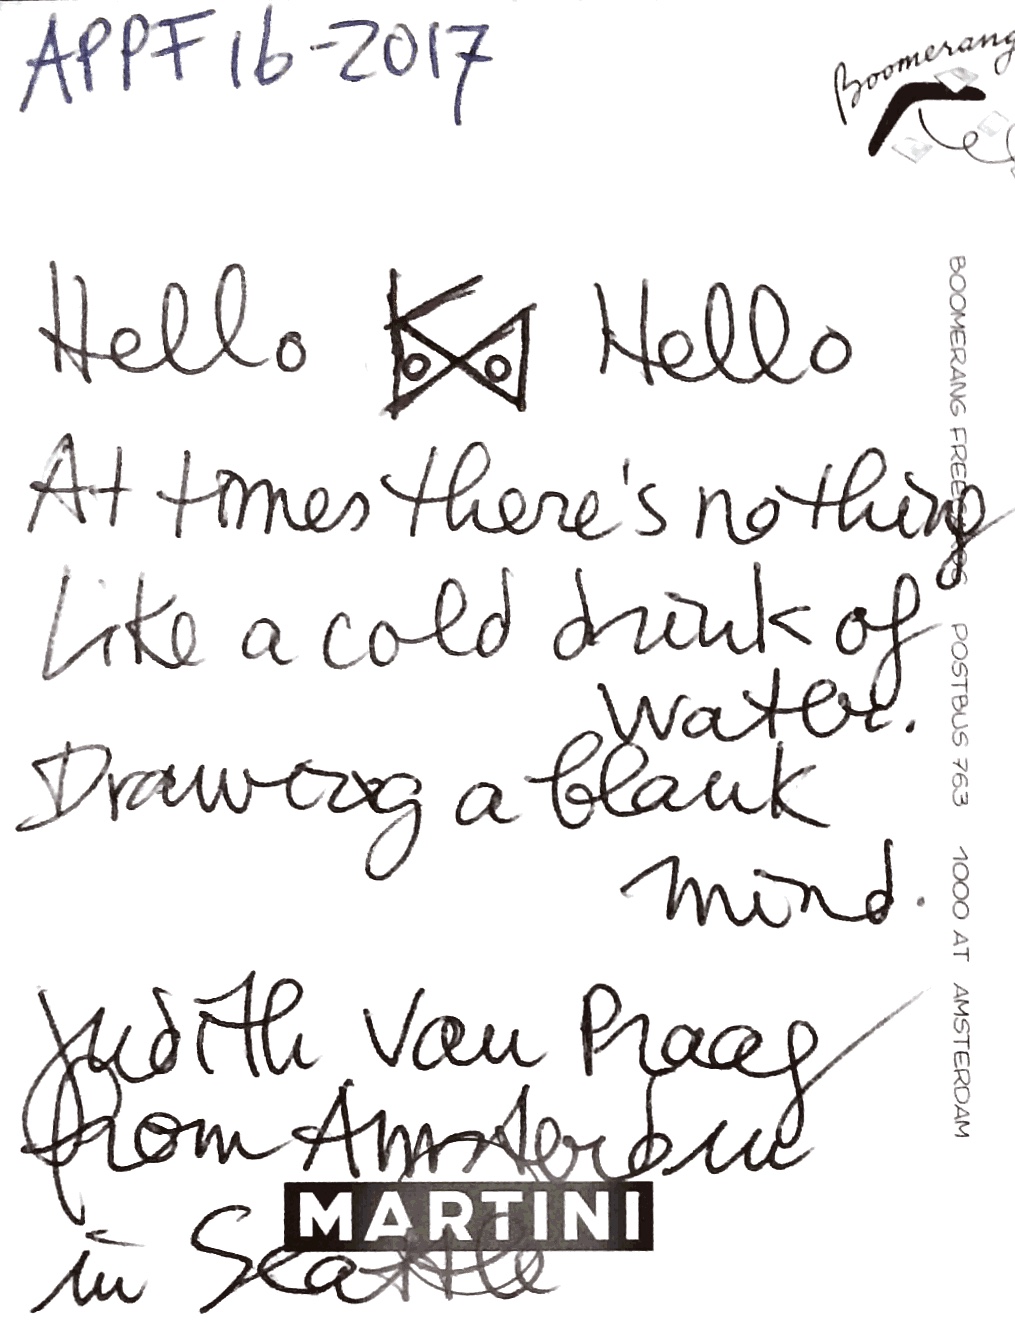 APPF 16-2017
Boomerang
Hello Hello
At times there's nothing
like a cold drink of
water.
Drawing a blank
mind.
Judith van Praag
from Amsterdam
in Seattle
MARTINI
BOOMERANG FREECARDS POSTBUS 763 1000 AT AMSTERDAM